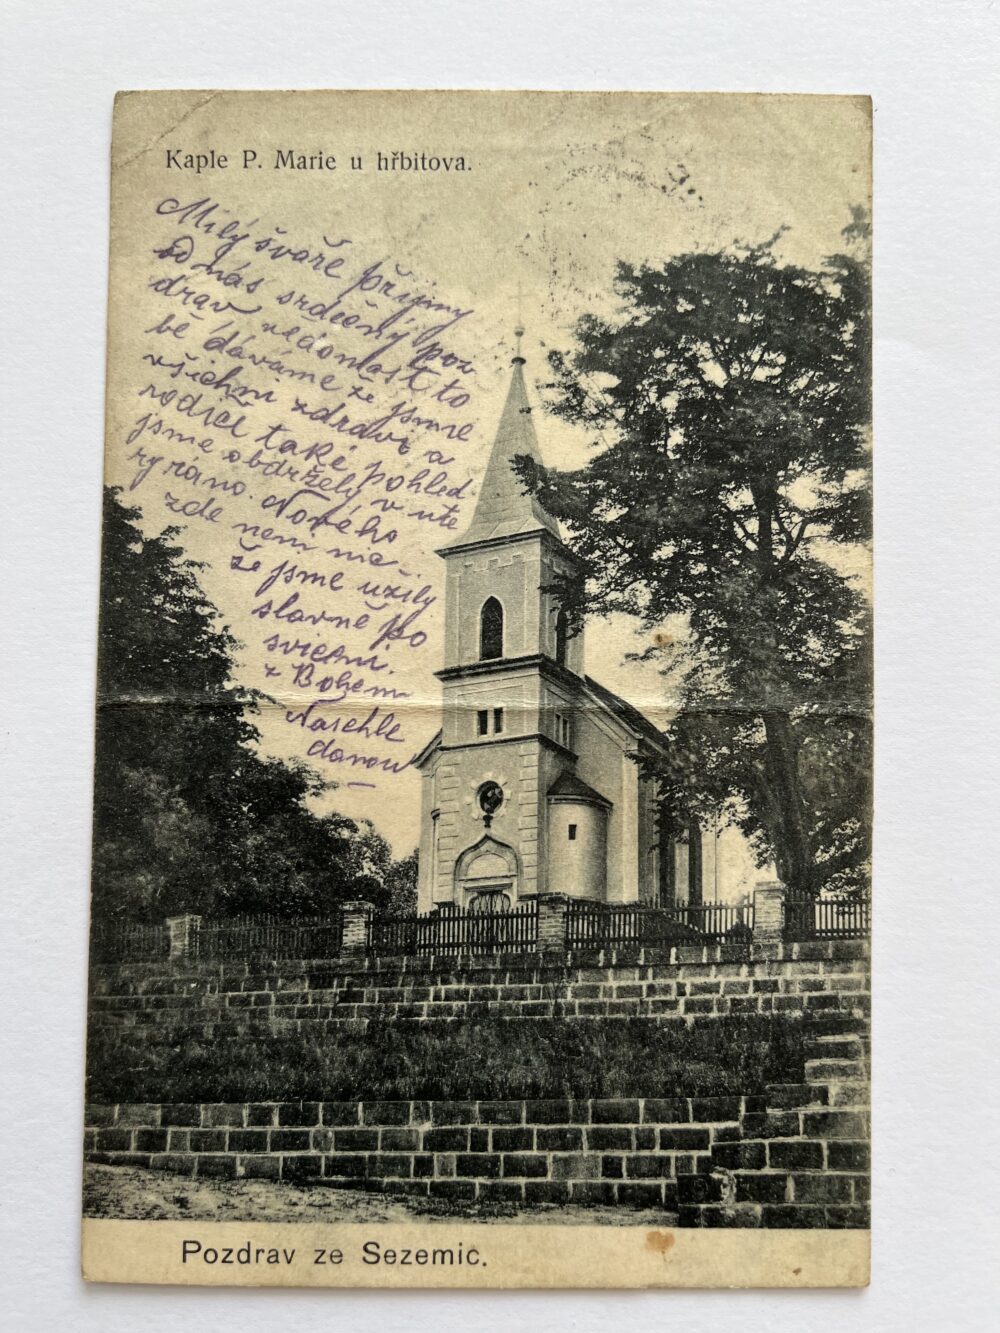 Kaple P. Marie u hřbitova.
Milý švaře přijmy
od nás srdečný poz
drav vědomost to
bě dáváme že jsme
všichni zdraví a
rodiče také pohled
jsme obdržely v ute
rý ráno. Nového
zde není nic
že jsme užily
slavně po
svícení.
z Bohem
Naschle
danou
Pozdrav ze Sezemic.